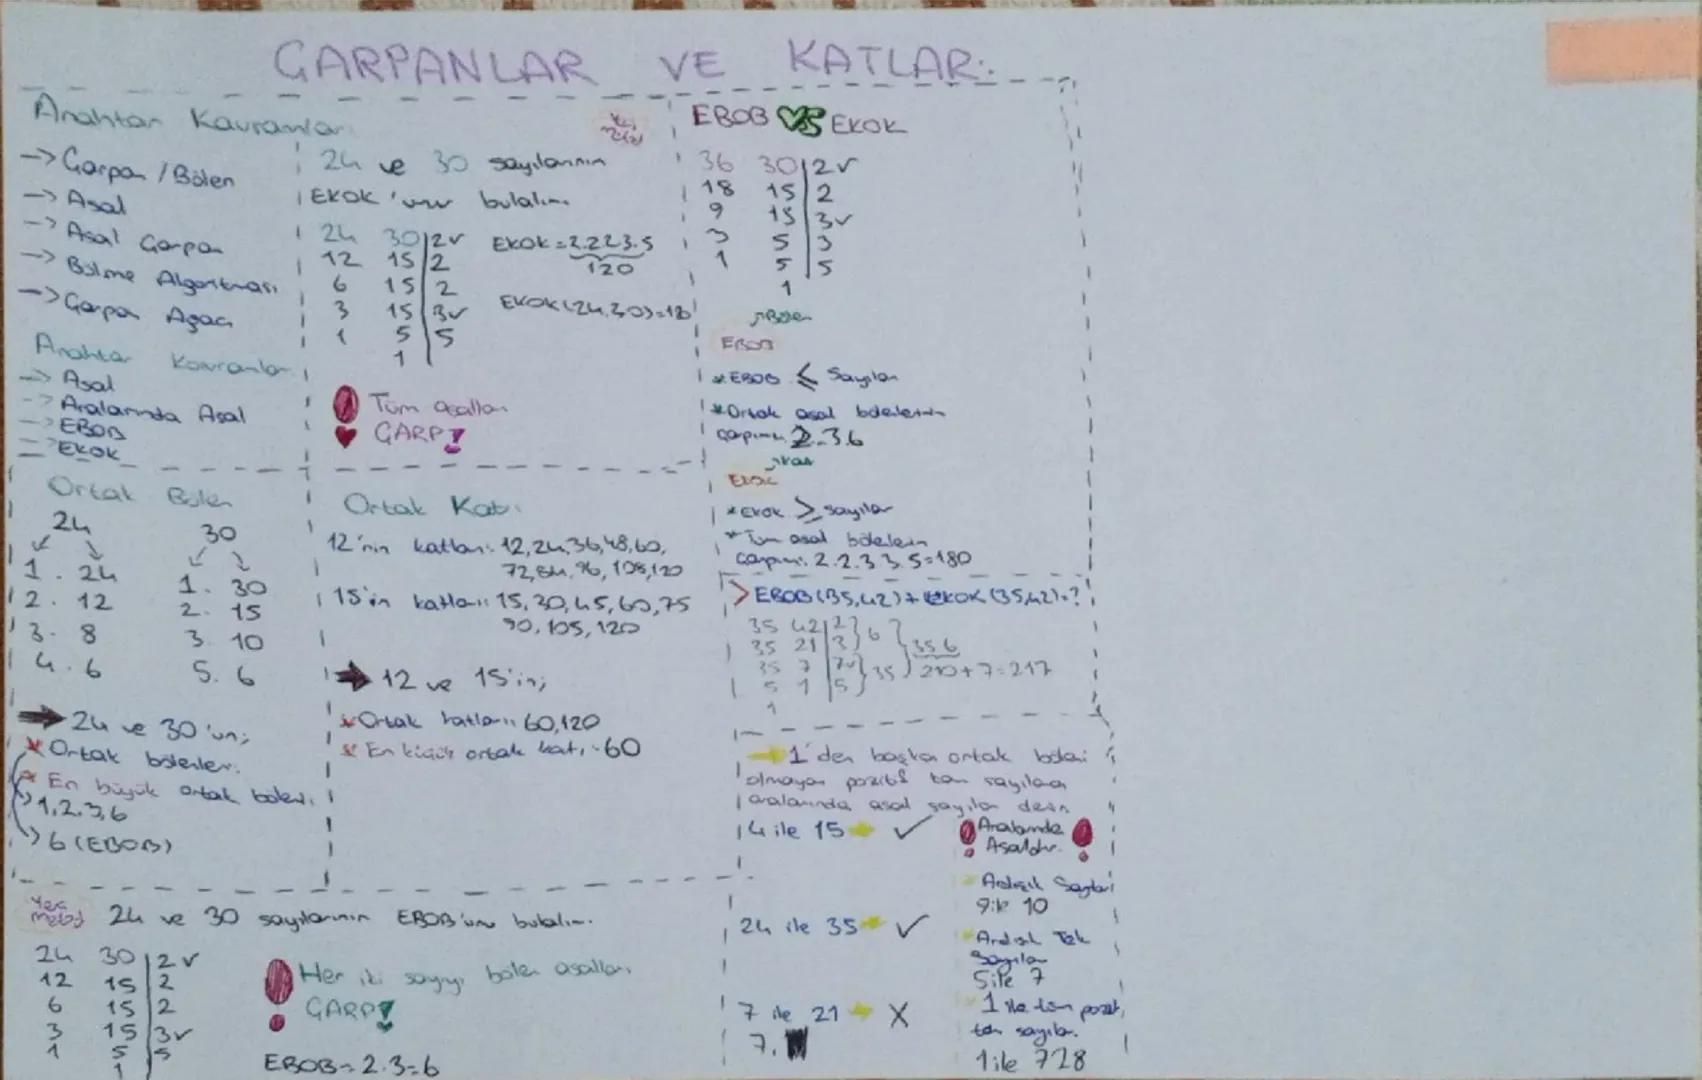 ÇARPANLAR VE KATLAR:
Anahtar Kavramlar
-> Çarpan / Bölen
-> Asal
-> Asal Çarpan
-> Bölme Algoritması
-> Çarpan Ağacı
Anahtar Kavramlar
-> Asal
-> Aralarında Asal
-> EBOB
-> EKOK
24 ve 30 sayılarının
EKOK'unu bulalım.
24 30 | 2 ✓
12 15 | 2
6 15 | 2
3 15 | 3 ✓
1 5 | 5
1
EKOK = 2.2.2.3.5
120
EKOK(24,30)=12
! Tüm asalları
♥ ÇARP!
EBOB VS EKOK
36 30 | 2 ✓
18 15 | 2
9 15 | 3 ✓
3 5 | 3
1 5 | 5
1
Bölen
EBOB
* EBOB ≤ Sayılar
* Ortak asal bölenlerin
çarpımı. 2.3.6
Kat
EKOK
* EKOK ≥ sayılar
* Tüm asal bölenlerin
çarpımı. 2.2.3.3.5=180
> EBOB(35,42)+EKOK(35,42)=?
35 42 | 2 } 6
35 21 | 3
35 7 | 7 ✓ } 35
5 1 | 5
1
35.6
210+7=217
Ortak Bölen
24
1 . 24
2 . 12
3 . 8
4 . 6
30
1. 30
2. 15
3. 10
5. 6
-> 24 ve 30'un;
* Ortak bölenler:
* En büyük ortak böleni.
1,2,3,6
6 (EBOB)
Ortak Katı
12'nin katları: 12,24,36,48,60,
72,84,96,108,120
15'in katları: 15,30,45,60,75
90,105,120
-> 12 ve 15'in;
* Ortak katları: 60,120
* En küçük ortak katı: 60
-> 1'den başka ortak böleni
olmayan pozitif tam sayılara
aralarında asal sayılar denir.
4 ile 15 -> ✓
! Aralarında !
Asaldır.
24 ile 35 -> ✓
7 ile 21 -> X
7.
Ardışık Sayılar
9 ile 10
Ardışık Tek
Sayılar
5 ile 7
1 ile tüm pozitif
tam sayılar.
1 ile 728
Yeni
Metod 24 ve 30 sayılarının EBOB'unu bulalım.
24 30 | 2 ✓
12 15 | 2
6 15 | 2
3 15 | 3 ✓
1 5 | 5
1
! Her iki sayıyı bölen asalları
ÇARP!
EBOB=2.3=6